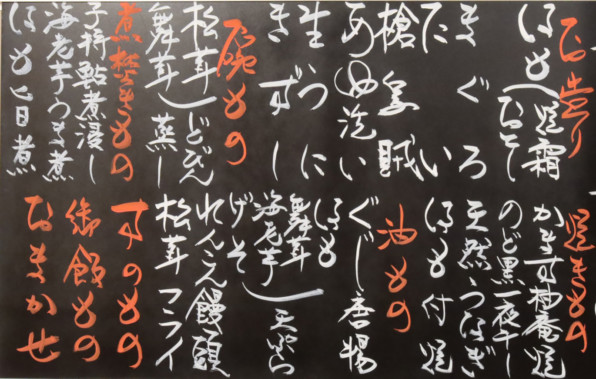 お造り
はも(焼霜
おとし
まぐろ
たい
槍烏賊
あゆ洗い
生うに
きずし
お椀もの
松茸
舞茸)どびん蒸し
煮焚きもの
子持鮎煮浸し
海老芋うま煮
はも旨煮
焼きもの
かます柚庵焼
のど黒一夜干し
天然うなぎ
はも付焼
油もの
ぐじ唐揚
はも
舞茸
海老芋
げそ
天ぷら
れんこん饅頭
松茸フライ
すのもの
御飯もの
おまかせ